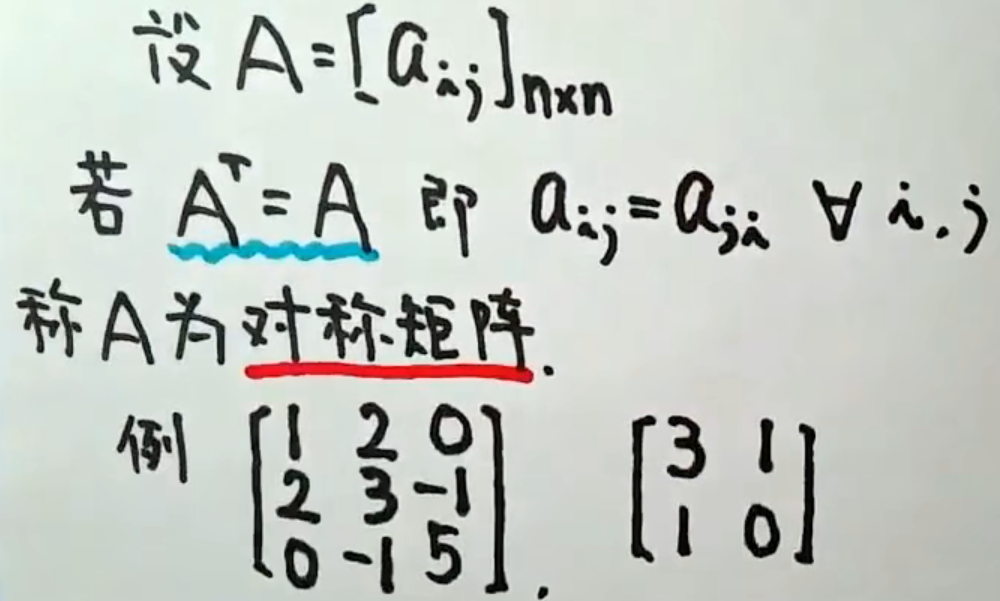 设 A=[aᵢⱼ]ₙₓₙ
若 Aᵀ=A 即 aᵢⱼ=aⱼᵢ ∀ i.j
称A为对称矩阵.
例 [1 2 0    [3 1
2 3 -1    1 0]
0 -1 5].